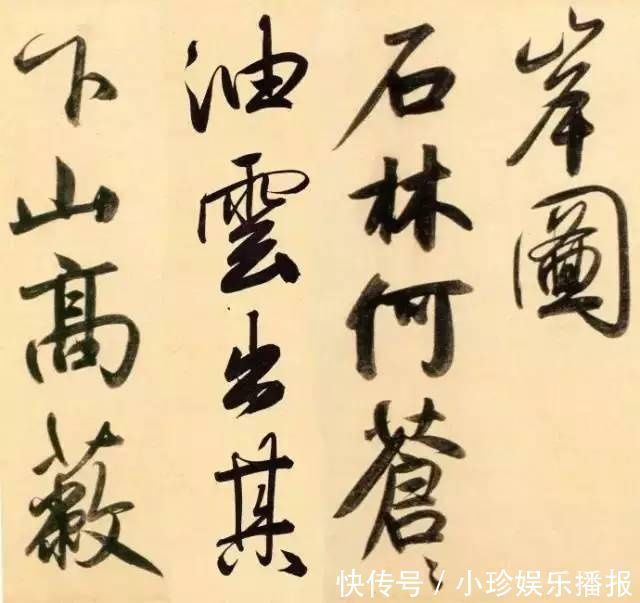 岸圖
石林何蒼〻
油雲出其
下山高蔽
快传号 / 小珍娱乐播报